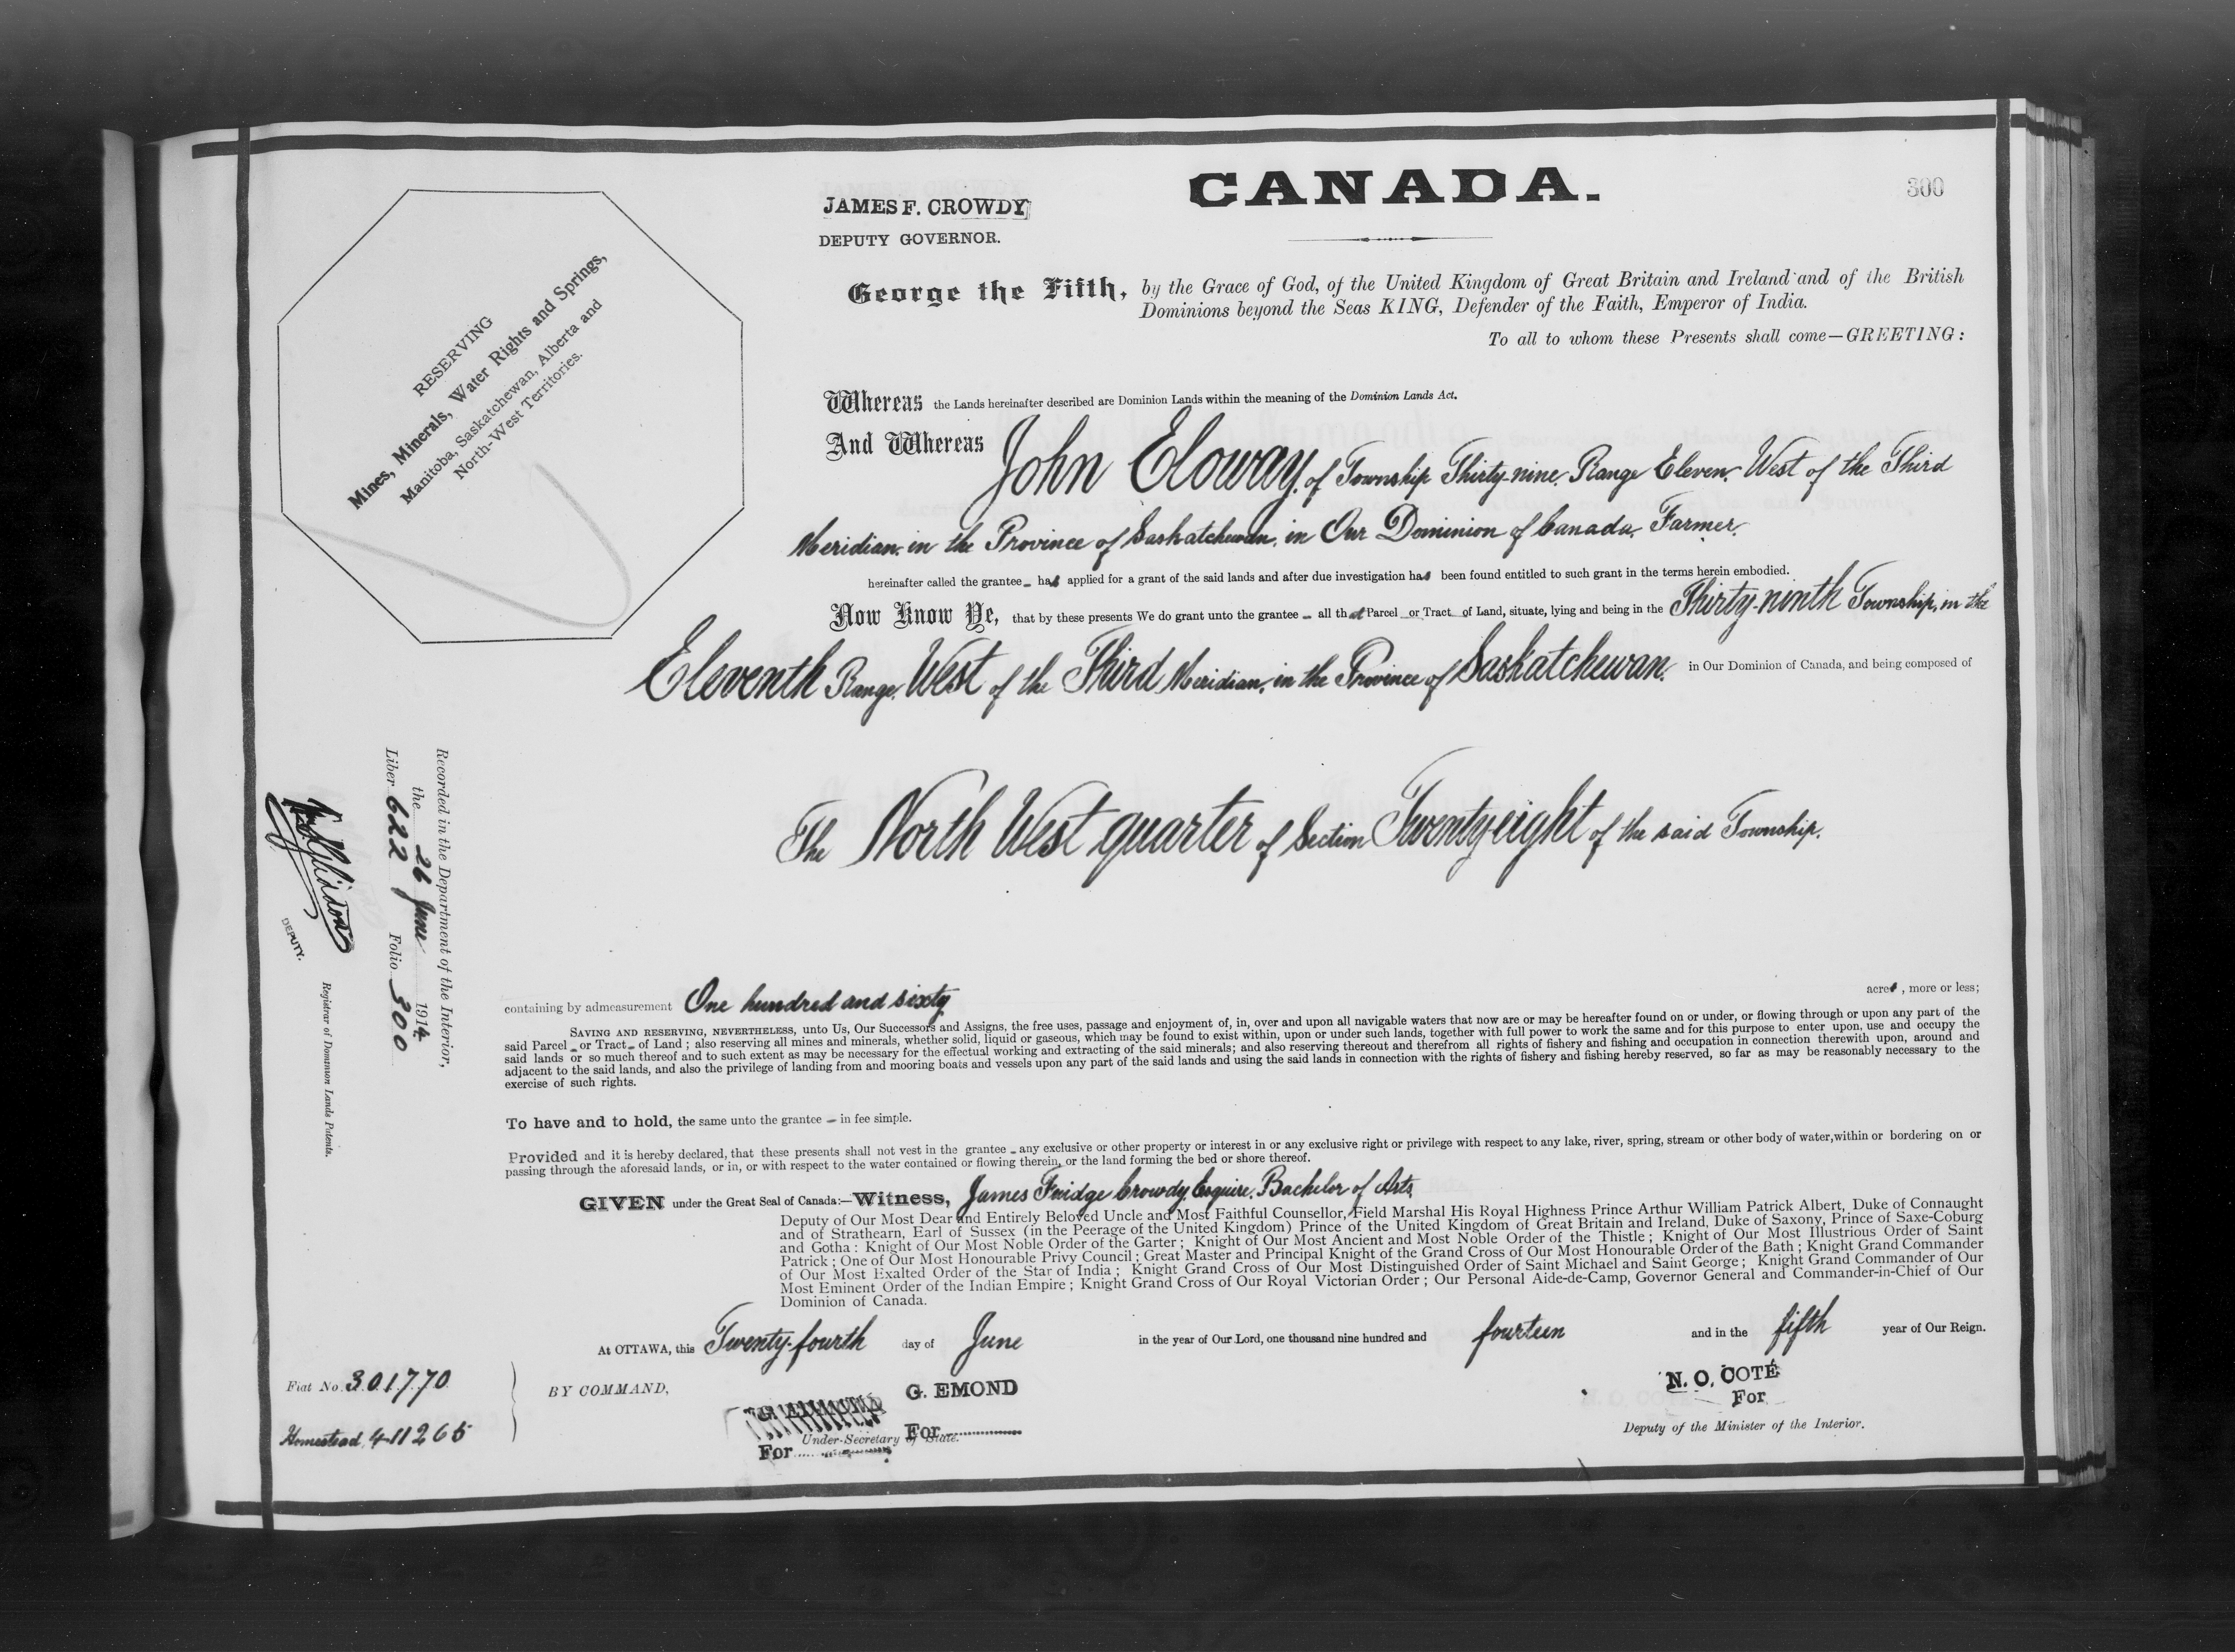 CANADA.
300
JAMES F. CROWDY
DEPUTY GOVERNOR.
George the Fifth, by the Grace of God, of the United Kingdom of Great Britain and Ireland and of the British
Dominions beyond the Seas KING, Defender of the Faith, Emperor of India.
To all to whom these Presents shall come—GREETING:
RESERVING
Mines, Minerals, Water Rights and Springs,
Manitoba, Saskatchewan, Alberta and
North-West Territories.
Whereas the Lands hereinafter described are Dominion Lands within the meaning of the Dominion Lands Act.
And Whereas John Eloway, of Township Thirty-nine, Range Eleven, West of the Third
Meridian, in the Province of Saskatchewan, in Our Dominion of Canada, Farmer,
hereinafter called the grantee – has applied for a grant of the said lands and after due investigation has been found entitled to such grant in the terms herein embodied.
Now Know Ye, that by these presents We do grant unto the grantee – all that Parcel or Tract of Land, situate, lying and being in the Thirty-ninth Township, in the
Eleventh Range, West of the Third Meridian, in the Province of Saskatchewan, in Our Dominion of Canada, and being composed of
The North West quarter of Section Twenty-eight of the said Township.
containing by admeasurement One hundred and sixty acres, more or less;
SAVING AND RESERVING, NEVERTHELESS, unto Us, Our Successors and Assigns, the free uses, passage and enjoyment of, in, over and upon all navigable waters that now are or may be hereafter found on or under, or flowing through or upon any part of the
said Parcel – or Tract – of Land; also reserving all mines and minerals, whether solid, liquid or gaseous, which may be found to exist within, upon or under such lands, together with full power to work the same and for this purpose to enter upon, use and occupy the
said lands or so much thereof and to such extent as may be necessary for the effectual working and extracting of the said minerals; and also reserving thereout and therefrom all rights of fishery and fishing and occupation in connection therewith upon, around and
adjacent to the said lands, and also the privilege of landing from and mooring boats and vessels upon any part of the said lands and using the said lands in connection with the rights of fishery and fishing hereby reserved, so far as may be reasonably necessary to the
exercise of such rights.
To have and to hold, the same unto the grantee – in fee simple.
Provided and it is hereby declared, that these presents shall not vest in the grantee – any exclusive or other property or interest in or any exclusive right or privilege with respect to any lake, river, spring, stream or other body of water, within or bordering on or
passing through the aforesaid lands, or in, or with respect to the water contained or flowing therein, or the land forming the bed or shore thereof.
GIVEN under the Great Seal of Canada:—Witness, James Fuidge Crowdy, Esquire, Bachelor of Arts,
Deputy of Our Most Dear and Entirely Beloved Uncle and Most Faithful Counsellor, Field Marshal His Royal Highness Prince Arthur William Patrick Albert, Duke of Connaught
and of Strathearn, Earl of Sussex (in the Peerage of the United Kingdom) Prince of the United Kingdom of Great Britain and Ireland, Duke of Saxony, Prince of Saxe-Coburg
and Gotha: Knight of Our Most Noble Order of the Garter; Knight of Our Most Ancient and Most Noble Order of the Thistle; Knight of Our Most Illustrious Order of Saint
Patrick; One of Our Most Honourable Privy Council; Great Master and Principal Knight of the Grand Cross of Our Most Honourable Order of the Bath; Knight Grand Commander
of Our Most Exalted Order of the Star of India; Knight Grand Cross of Our Most Distinguished Order of Saint Michael and Saint George; Knight Grand Commander of Our
Most Eminent Order of the Indian Empire; Knight Grand Cross of Our Royal Victorian Order; Our Personal Aide-de-Camp, Governor General and Commander-in-Chief of Our
Dominion of Canada.
At OTTAWA, this Twenty-fourth day of June in the year of Our Lord, one thousand nine hundred and fourteen and in the fifth year of Our Reign.
BY COMMAND,
G. EMOND
For
Under-Secretary of State.
For
N. O. COTÉ
For
Deputy of the Minister of the Interior.
Fiat No. 301770
Homestead 411265
Recorded in the Department of the Interior,
the 26 June 1914
Liber 622 Folio 300
DEPUTY.
Registrar of Dominion Lands Patents.